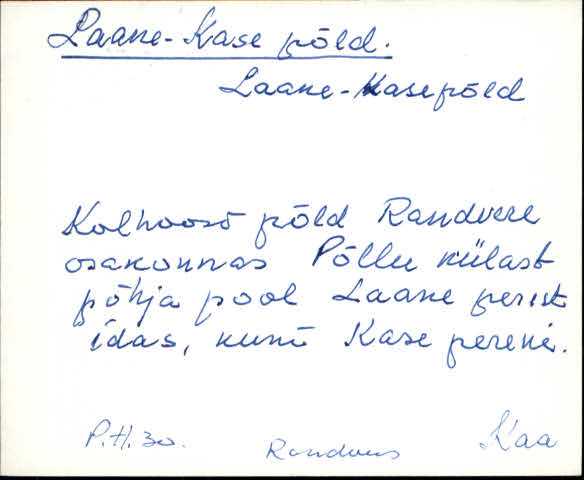 Laane-Kase põld.
Laane-Kasepõld
Kolhoosi põld Randvere
osakonnas Põllu külast
põhja pool Laane perest
idas, kuni Kase pereni.
P.H. 30. Randvere Kaa